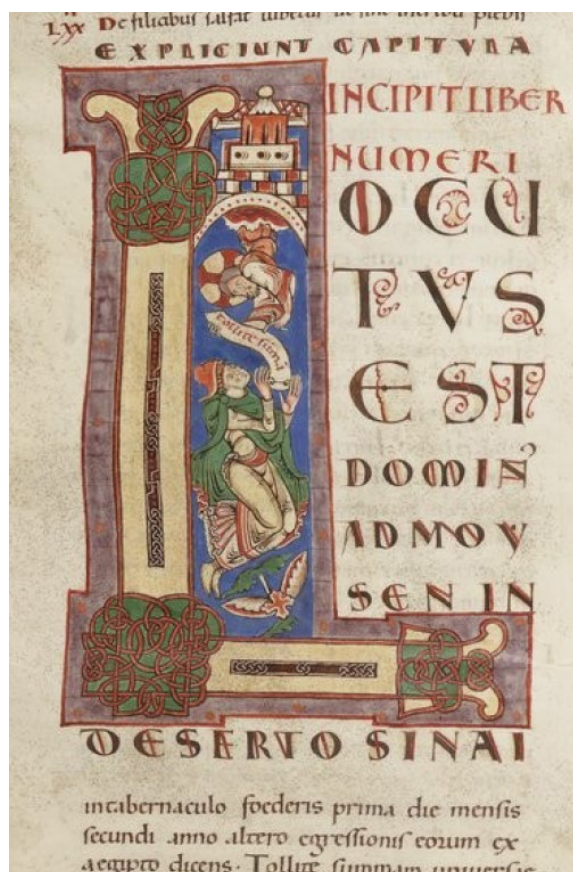 LXX De filiabus salfat
EXPLICIUNT CAPITVLA
INCIPIT LIBER
NUMERI
LOCU
TVS
EST
DOMIN
AD MOY
SEN IN
DESERTO SINAI
tollite sumā
in tabernaculo foederis prima die mensis
secundi anno altero egressionis eorum ex
aegipto dicens. Tollite summam universe